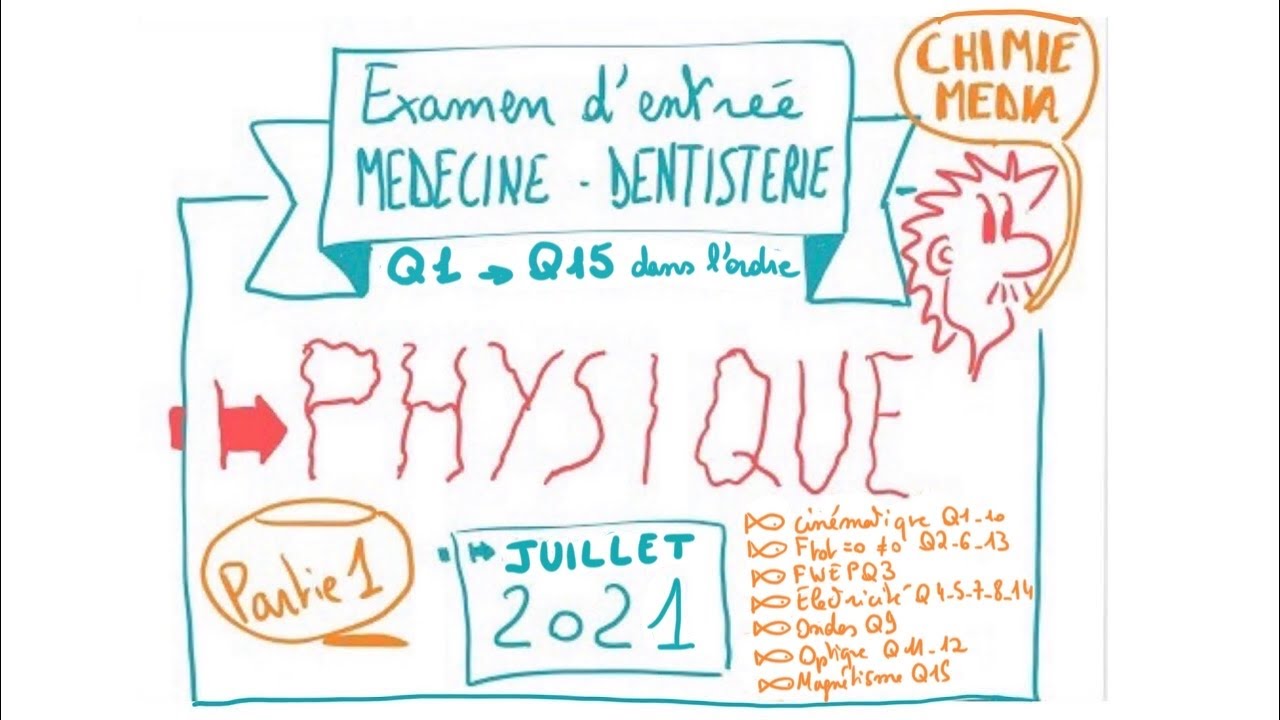 CHIMIE
MEDIA
Examen d'entreé
MEDECINE - DENTISTERIE
Q1 → Q15 dans l'ordre
PHYSIQUE
Partie 1
JUILLET
2021
cinématique Q1-10
Ftot =0 ≠0 Q2-6-13
FWEPQ3
Électricité Q4-5-7-8-14
Ondes Q9
Optique Q11-12
Magnétisme Q15